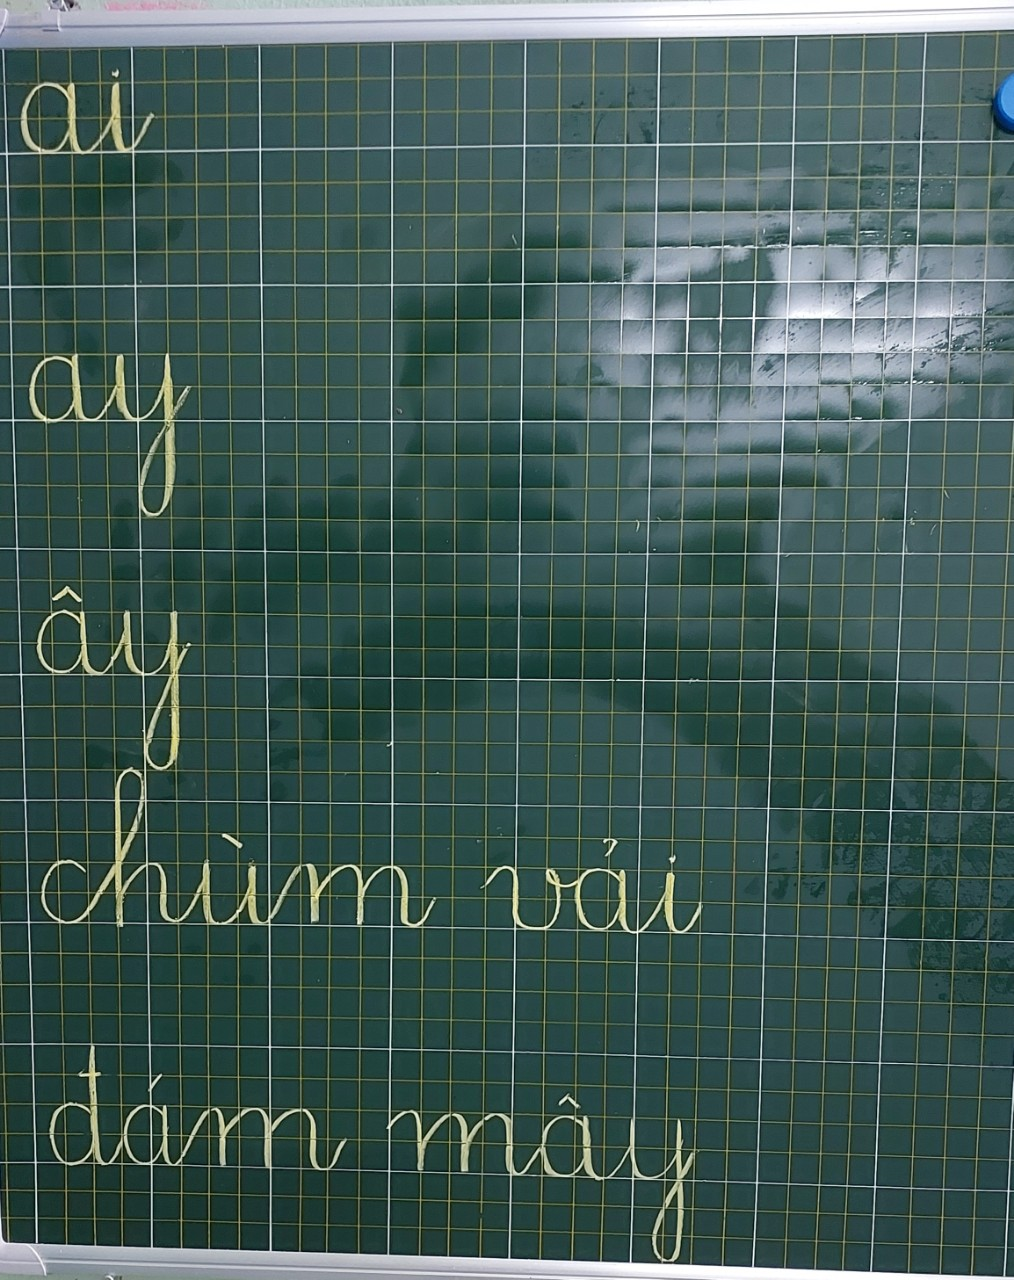 ai
ay
ây
chùm vải
đám mây